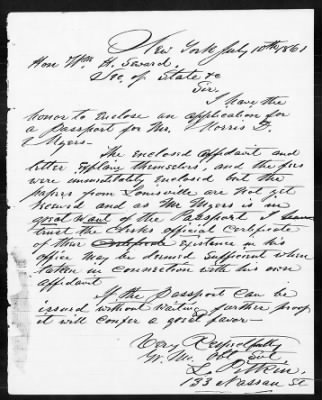 New York July 10th 1861
Hon Wm H. Seward.
Sec. of State &c
Sir.
I have the
honor to enclose an application for
a Passport for Mr. Morris D.
Myers.
The enclosed affidavit and
letter explain themselves, and the
were unintentionally enclosed but the
papers from Louisville are not yet
received and as Mr Myers is in
great want of the Passport I
trust the Clerks official Certificate
of their existence in his
office may be deemed sufficient when
taken in connection with his own
affidavit
If the Passport can be
issued without waiting further proof
it will confer a great favor—
Very Respectfully
Yr. Mo. Obt Svt.
133 Nassau St